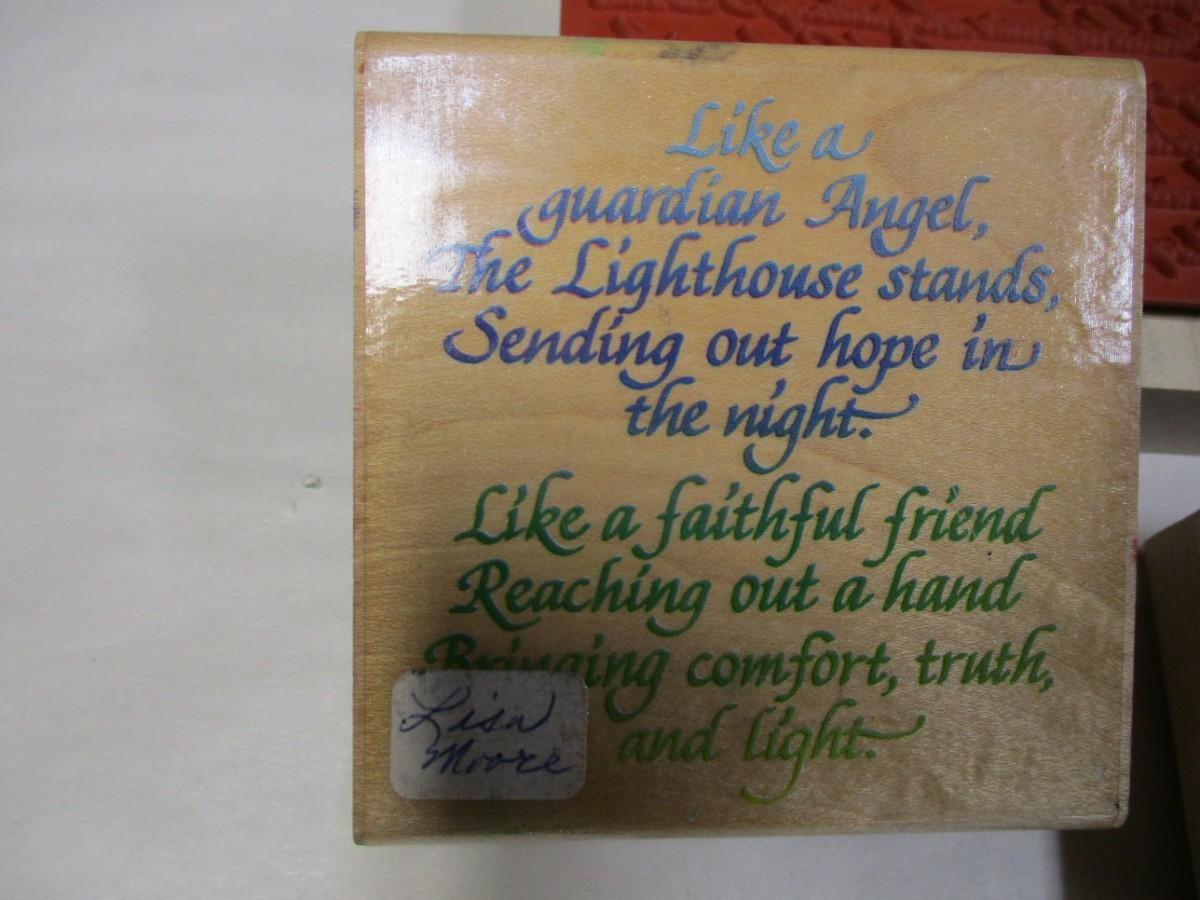 Like a
guardian Angel,
The Lighthouse stands,
Sending out hope in
the night.
Like a faithful friend
Reaching out a hand
Bringing comfort, truth,
and light.
Lisa
Moore